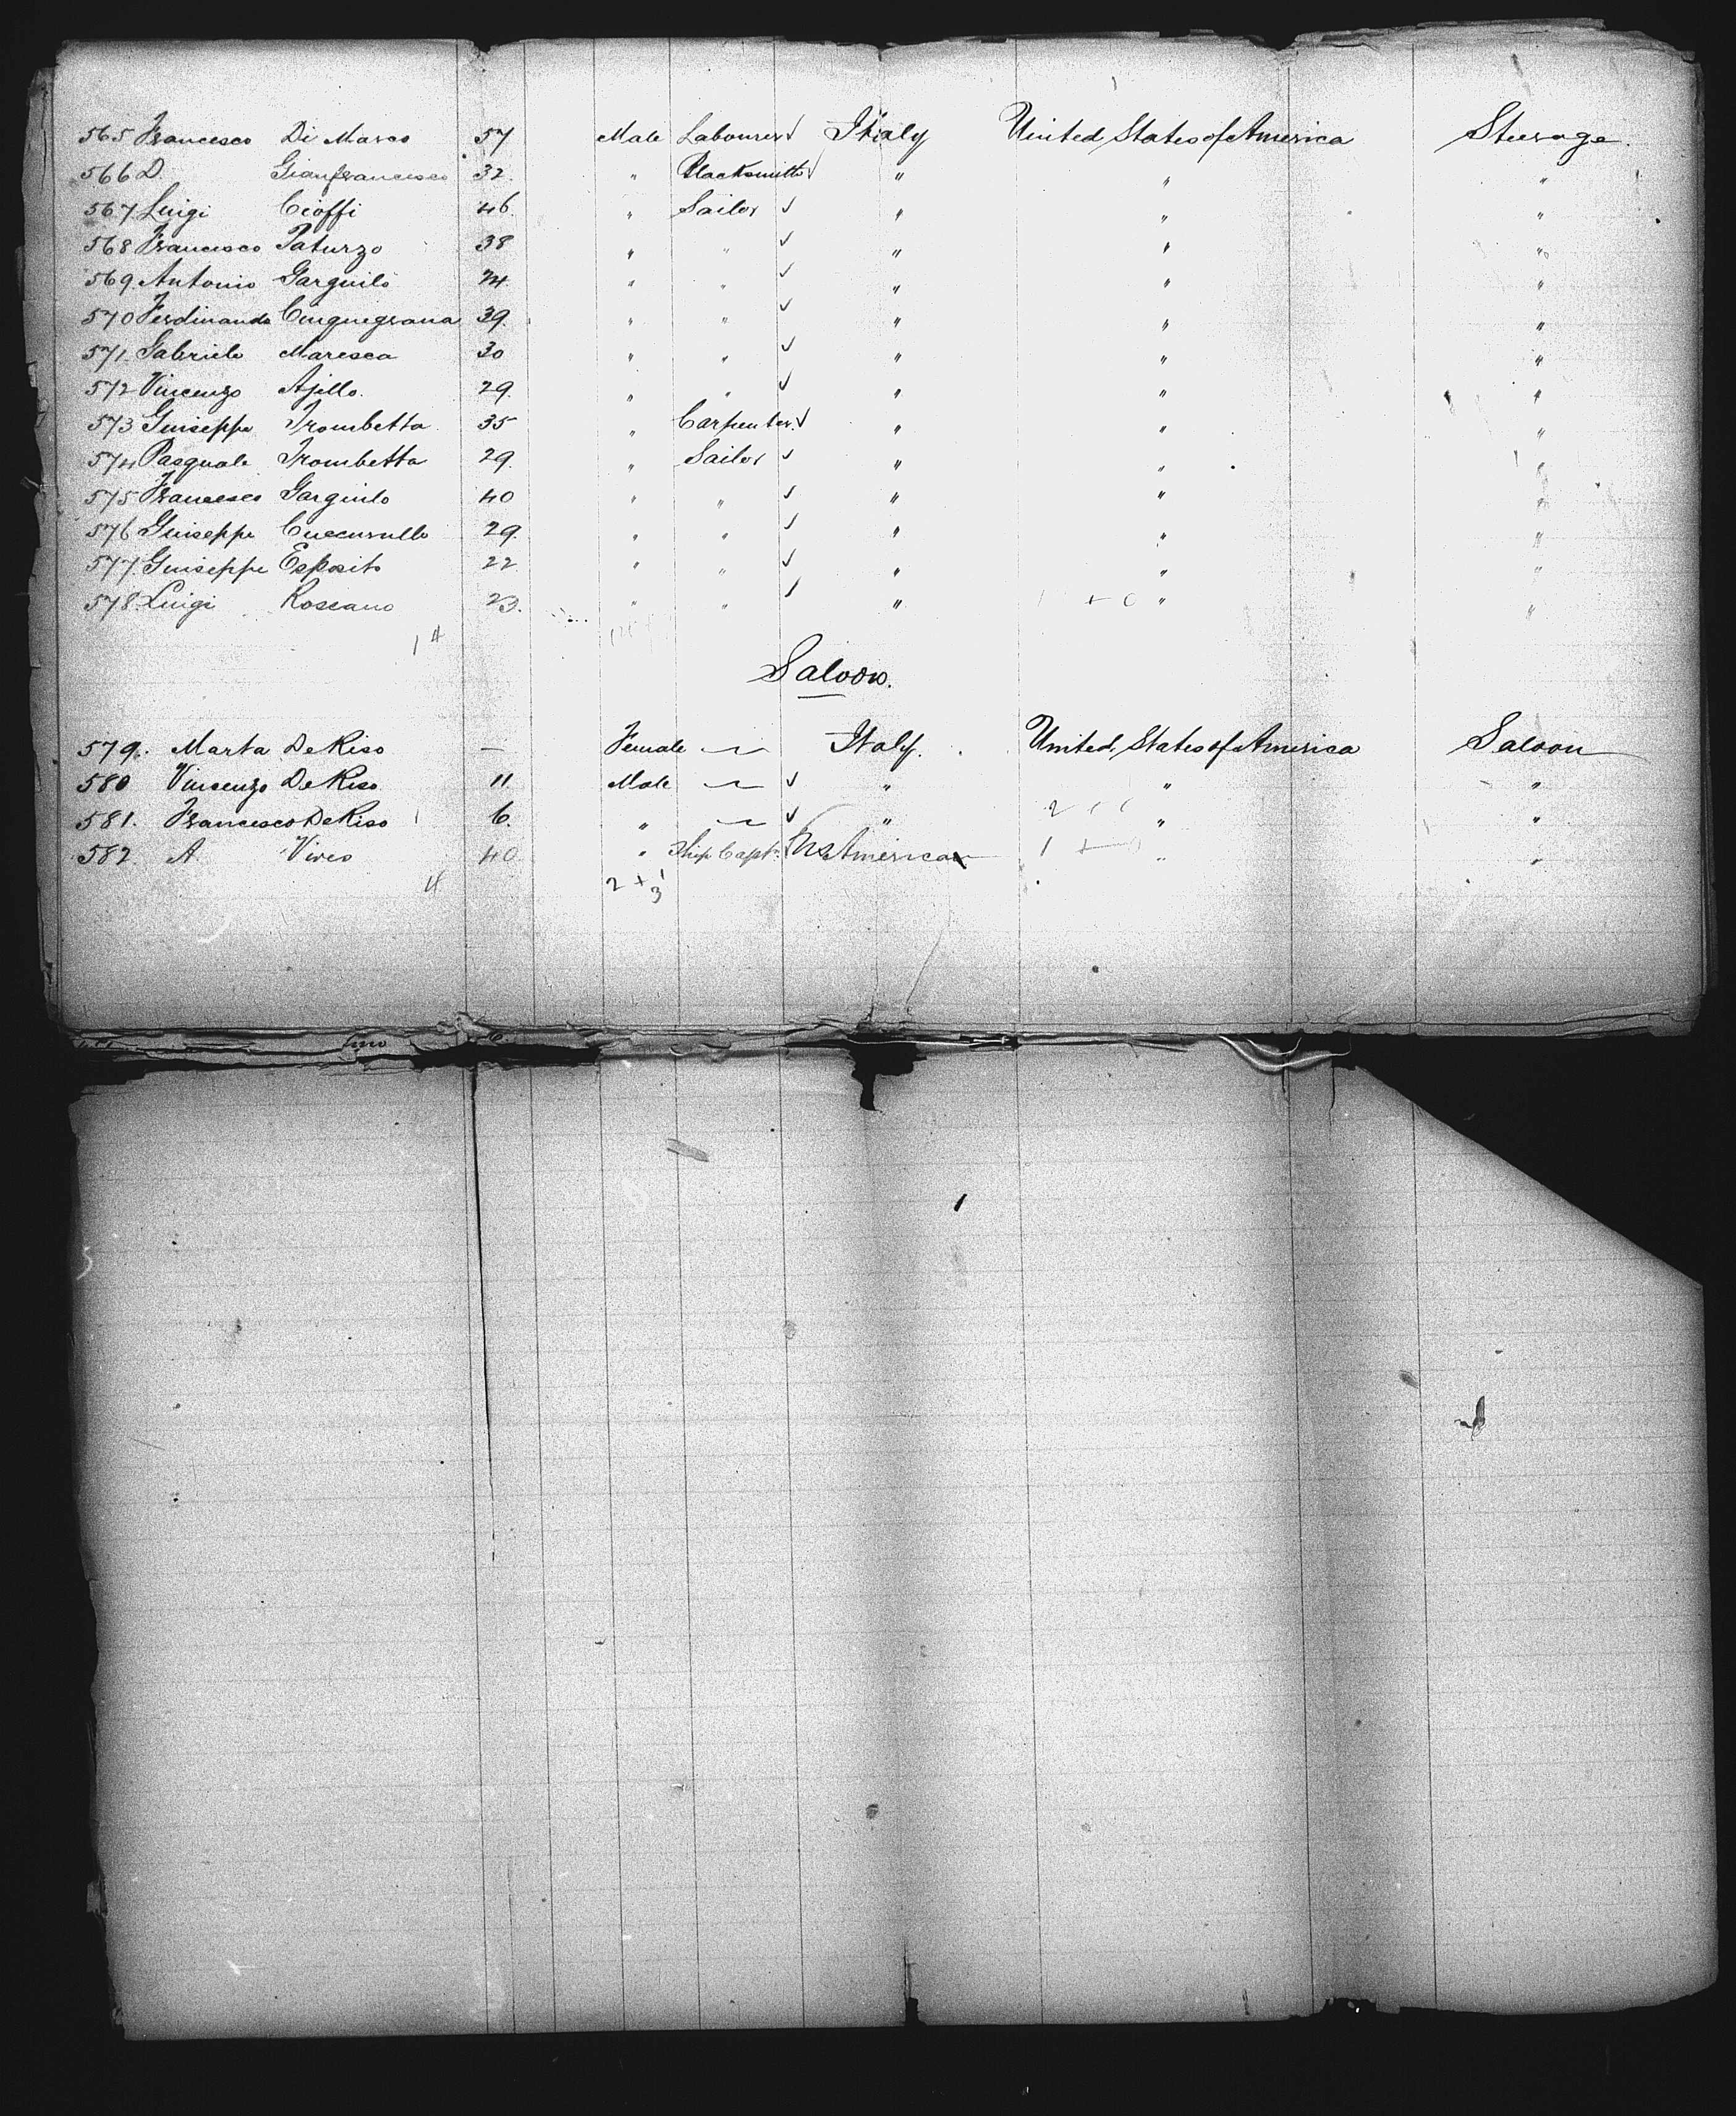 565 Francesco Di Marco 57 Male Labourer ✓ Italy United States of America Steerage.
566 D. Gianfrancesco 32. " Blacksmith ✓ " " "
567 Luigi Cioffi 46. " Sailor ✓ " " "
568 Francesco Paturzo 38 " " ✓ " " "
569. Antonio Garguilo 24. " " ✓ " " "
570 Ferdinando Cinquegrana 39. " " ✓ " " "
571. Gabriele Maresca 30 " " ✓ " " "
572 Vincenzo Ajello. 29. " " ✓ " " "
573 Guiseppe Trombetta 35 " Carpenter. ✓ " " "
574 Pasquale Trombetta 29. " Sailor ✓ " " "
575 Francesco Garguilo 40 " " ✓ " " "
576 Guiseppe Cuccurullo 29. " " ✓ " " "
577. Guiseppe Esposito 22 " " ✓ " " "
578. Luigi Roscano 23. " " ✓ " " "
14
Saloon.
579. Marta De Riso — Female — Italy. United States of America Saloon
580 Vincenzo De Riso 11 Male — ✓ " " "
581. Francesco De Riso 6. " — ✓ " " "
582 A. Vives 40 " Ship Capt. America " "
4 2 +